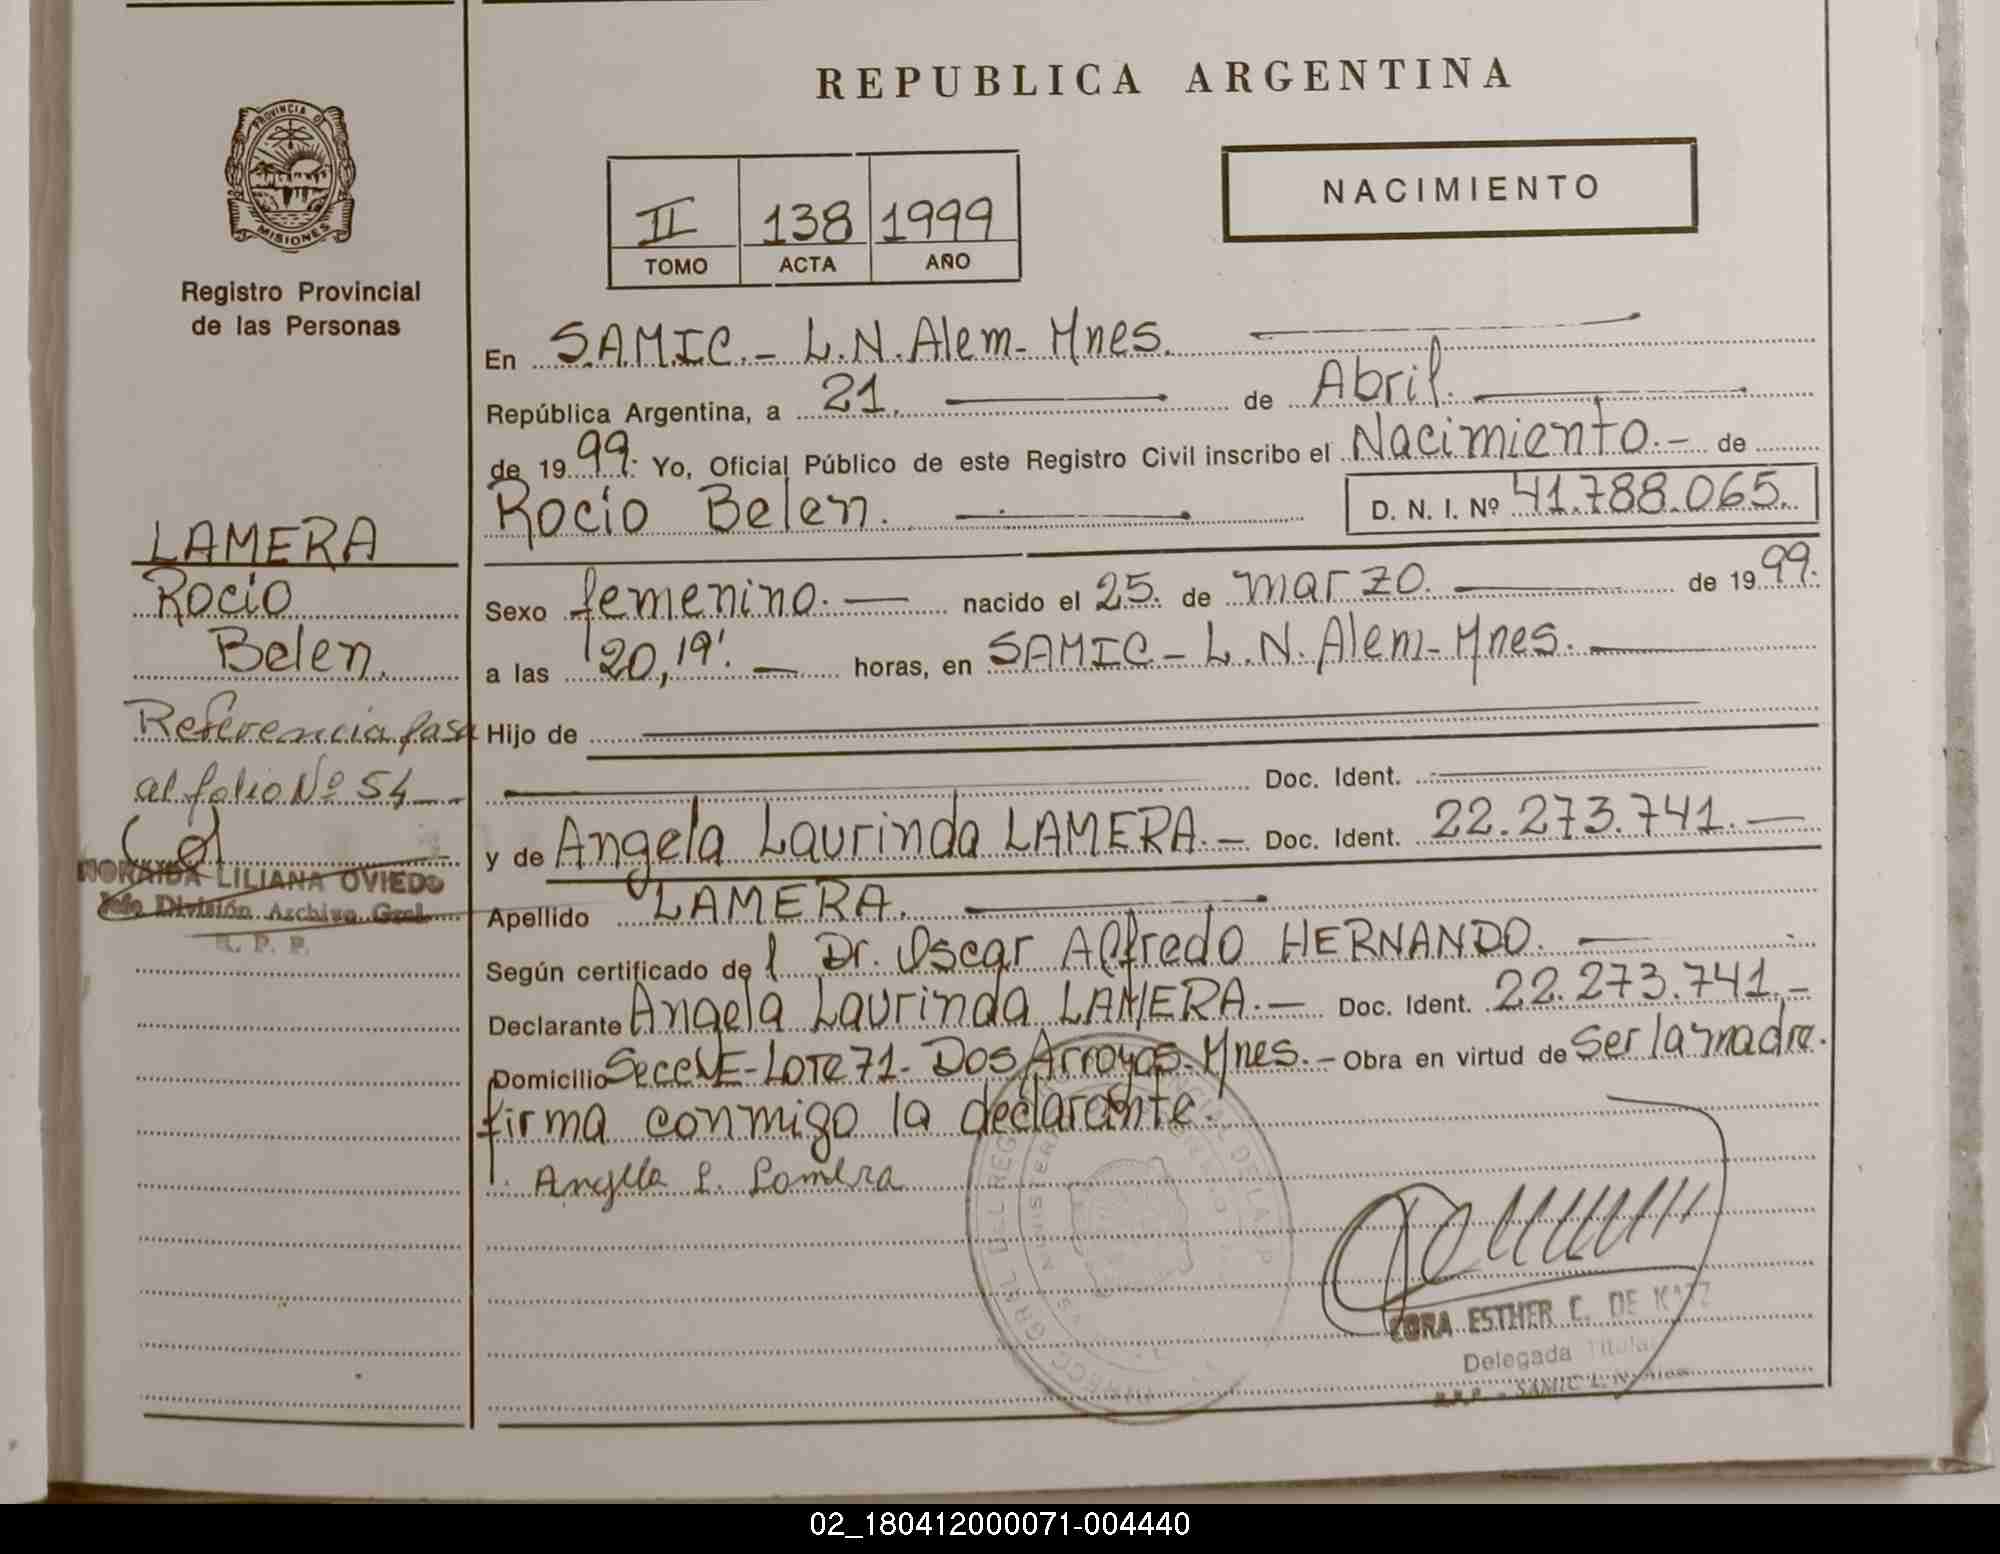 REPUBLICA ARGENTINA
PROVINCIA D
MISIONES
Registro Provincial
de las Personas
NACIMIENTO
II 138 1999
TOMO ACTA AÑO
En S.A.M.I.C.- L.N.Alem- Mnes.
República Argentina, a 21. de Abril.
de 1999. Yo, Oficial Público de este Registro Civil inscribo el Nacimiento.- de
Rocio Belen. D. N. I. Nº 41.788.065.
LAMERA
Rocio
Belen.
Sexo femenino.- nacido el 25. de marzo. de 1999.
a las 20,19'. horas, en SAMIC- L.N. Alem- Mnes.
Referencia pasa
al folio Nº 54
Hijo de
Doc. Ident.
y de Angela Laurinda LAMERA.- Doc. Ident. 22.273.741.-
LILIANA OVIEDO
Jefe División Archivo Gral.
R. P. P.
Apellido LAMERA.
Según certificado del Dr. Oscar Alfredo HERNANDO.
Declarante Angela Laurinda LAMERA.- Doc. Ident. 22.273.741.-
Domicilio Secc NE-Lote 71- Dos Arroyos- Mnes.- Obra en virtud de Ser la madre.
firma conmigo la declarante.
Angela L. Lamera
ESTHER C. DE KATZ
Delegada Titular
R.P.P. - SAMIC L. N. Alem
02_180412000071-004440